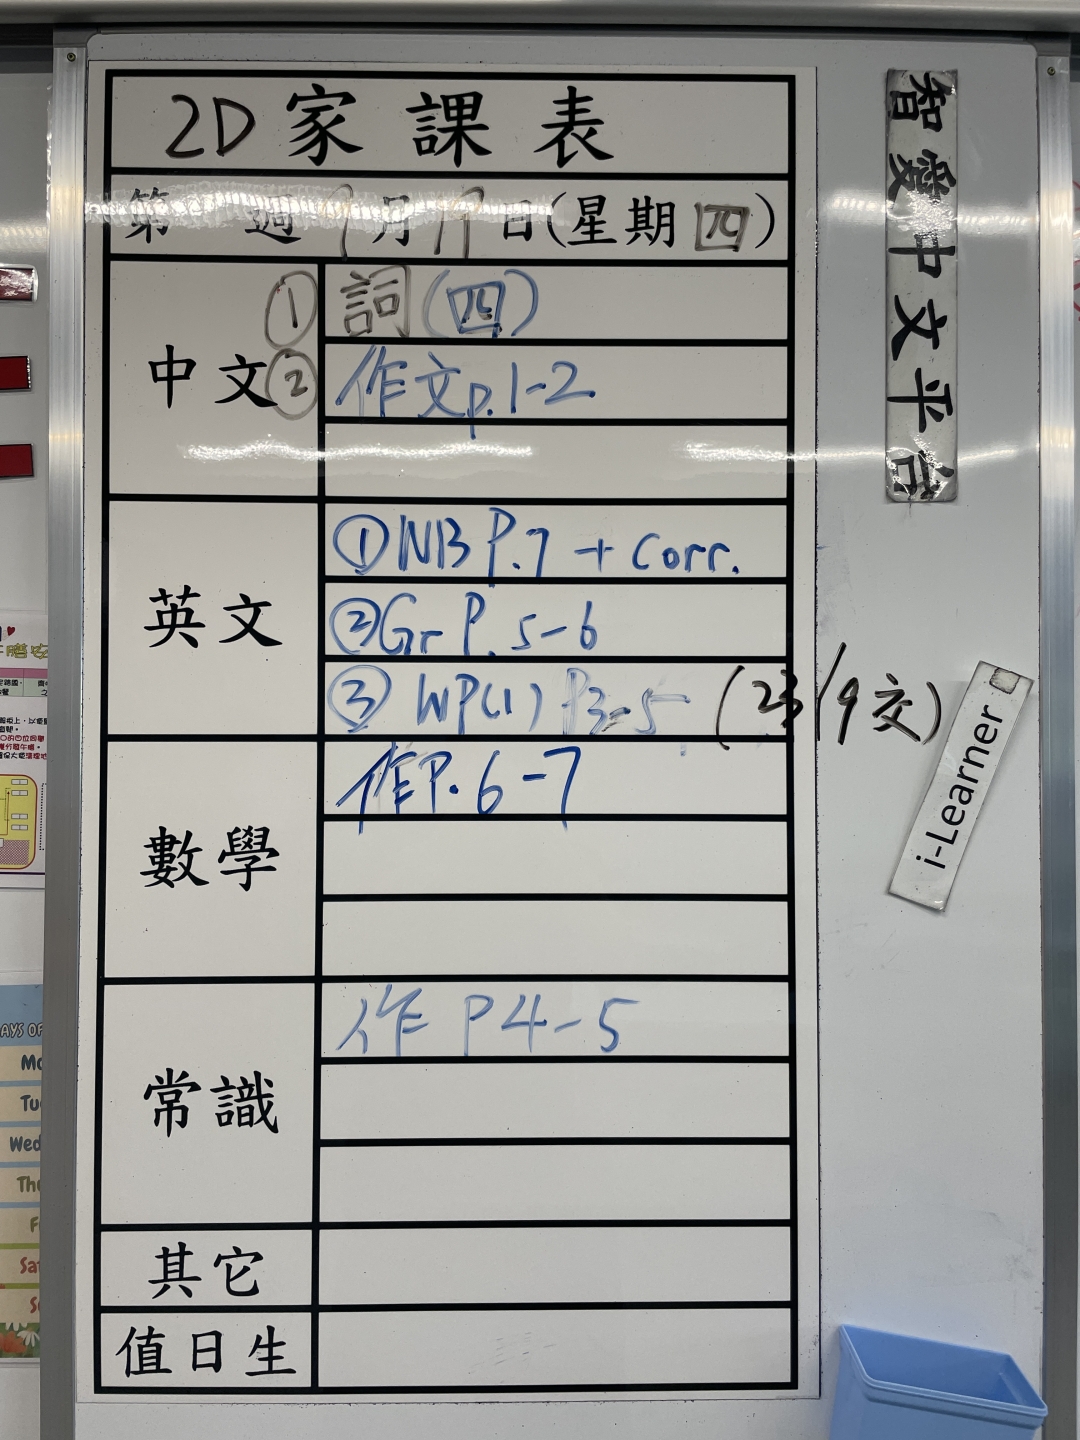 2D家課表
第 週9月19日(星期四)
中文
① 詞(四)
② 作文p.1-2
英文
①NB P.7 + Corr.
②Gr P.5-6
③ WP(1) P3-5 (23/9交)
數學
作P.6-7
常識
作 P4-5
其它
值日生
智愛中文平台
i-Learner
AYS OF
Mo
Tu
Wed
Thu
F
Sat
S